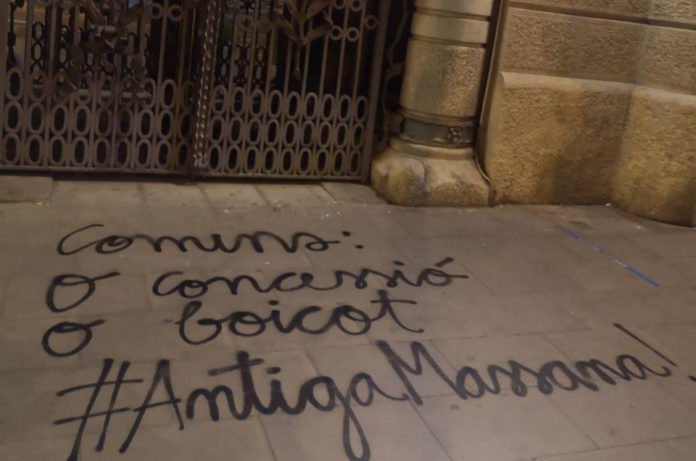 Comuns:
o concessió
o boicot
#AntigaMassana!